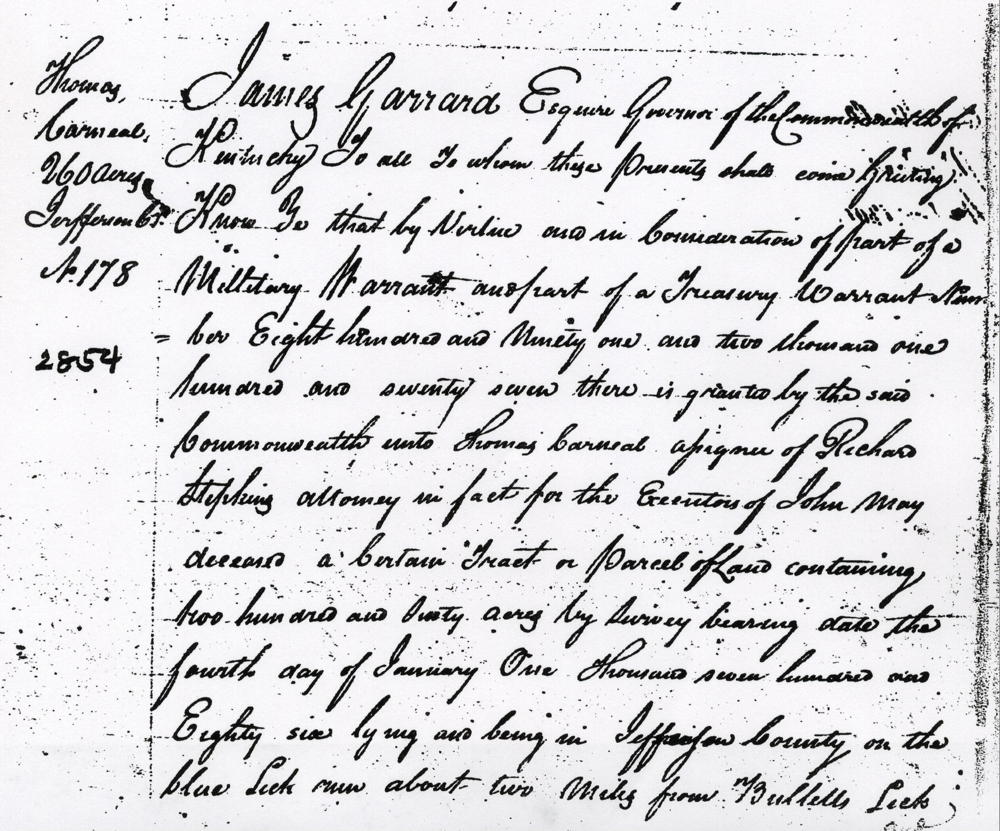 Thomas
Carneal,
260 acres
Jefferson Co.
No. 178
2854
James Garrard Esquire Governor of the Commonwealth of
Kentucky To all To whom these Presents shall come Greeting
Know Ye that by Virtue and in Consideration of part of a
Millitary Warrant and part of a Treasury Warrant Num
= ber Eight hundred and Ninety one and two thousand one
hundred and seventy seven there is granted by the said
Commonwealth unto Thomas Carneal assignee of Richard
Stephins attorney in fact for the Executors of John May
deceased a Certain Tract or Parcel of Land containing
two hundred and Sixty acres by Survey bearing date the
fourth day of January One Thousand seven hundred and
Eighty six lying and being in Jefferson County on the
blue Lick run about two Miles from Bullitts Lick